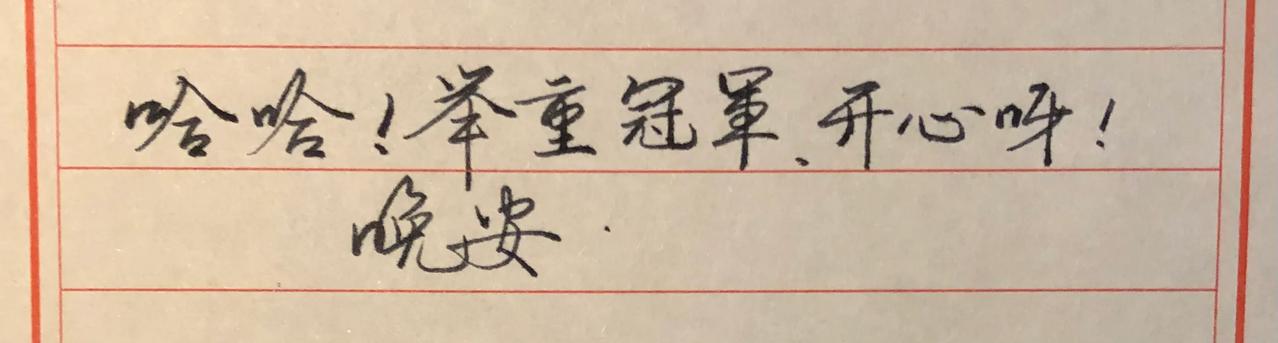 哈哈！举重冠軍、开心呀！
晚安.